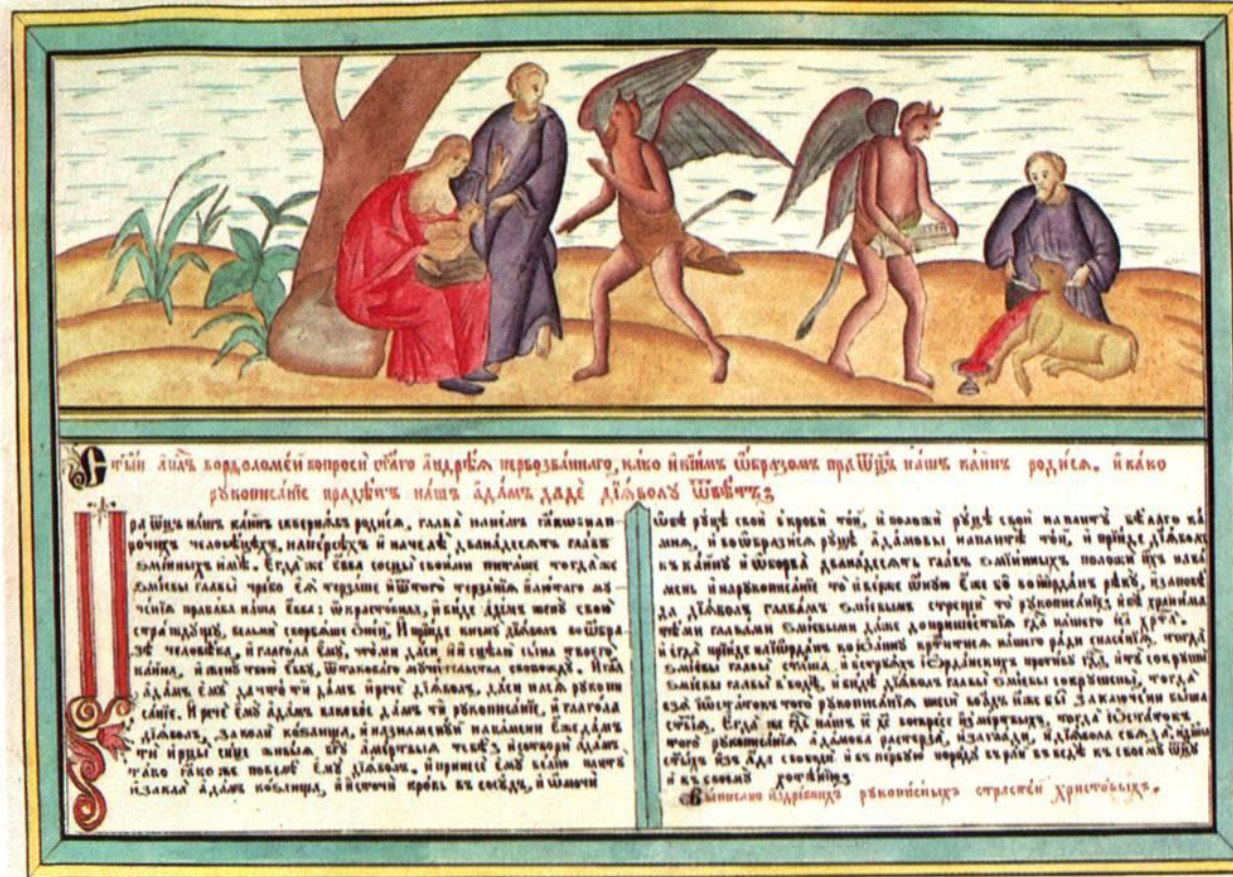 Ст҃ый ап҃лъ вордоломей вопроси ст҃аго андрѣя первозваннаго, како и киимъ ѡбразомъ праѿц҃ъ нашъ каинъ родися. и како
рукописанїе прадѣдъ нашъ адамъ даде дїаволу ѿвѣтъ
Праѿц҃ъ нашъ каинъ сквернавъ родися, глава на немъ
человѣцѣхъ, на персѣхъ и на челѣ дванадесять главъ
змїиныхъ имѣ. Егда же евва сосцы своими питаше тогда же
змїевы главы чрево ея терзаше и ѿ того терзанїя и лютаго му
ченїя прабаба наша евва: и видѣ адамъ жену свою
страждущу, вельми скорбяше ѡ ней, И прїиде к нему дїаволъ во ѡбра
зѣ человѣка, и глагола ему, что ми даси и исцелю сына твоего
каина, и жену твою евву, ѿ таковаго мучительства свобожду. И гл҃а
адамъ ему да что ти дамъ и рече дїаволъ, даси на ся рукопи
санїе. И рече ему адамъ каковое дамъ ти рукописанїе, и глагола
дїаволъ, заколи козлища, и назнаменуй на камени еже дамъ
ти и рцы сице живыя бг҃у а мертвыя тебѣ и сотвори адамъ
тако якоже повелѣ ему дїаволъ. и принесе ему велїю плиту
и закла адамъ козлища, и источи кровь въ сосудъ, и ѡмочи
ѡбѣ руцѣ свои в крови той, и положи руцѣ свои на плиту бѣлаго ка
мня, и вообразися руцѣ адамовы на плитѣ той, и прїиде дїаволъ
къ каину и ѡборва дванадесять главъ змїиныхъ положи ихъ на ка
мень и на рукописанїе то и верже во їѡрданъ рѣку, и заповѣ
да дїаволъ главамъ змїевымъ стрещи то рукописанїе и бѣ хранима
тѣми главами змїевыми даже до пришествїя гд҃а нашего їс҃а хр҃та.
и егда прїиде на їѡрданъ ко їѡанну крт҃итися нашего ради спасенїя, тогда
змїевы главы сташа и їѡрданскихъ противу гд҃а, и ту сокруши
змїевы главы в водѣ, и видѣ дїаволъ главы змїевы сокрушены, тогда
взя и ѡстатокъ того рукописанїя внесе во адъ идѣже бы заключени быша
ст҃їя. Егда же гд҃ь нашъ їс҃ хс҃ воскресе из мертвыхъ, тогда и ѡстатокъ
того рукописанїя адамова растерза, и загладѝ, и дїавола связа,
ст҃ыхъ изъ ада свободи. и въ первую породу въ рай въведе къ своему ѡц҃у
и къ своему хотѣнїю
Выписано из древнихъ рукописныхъ страстей христовыхъ.